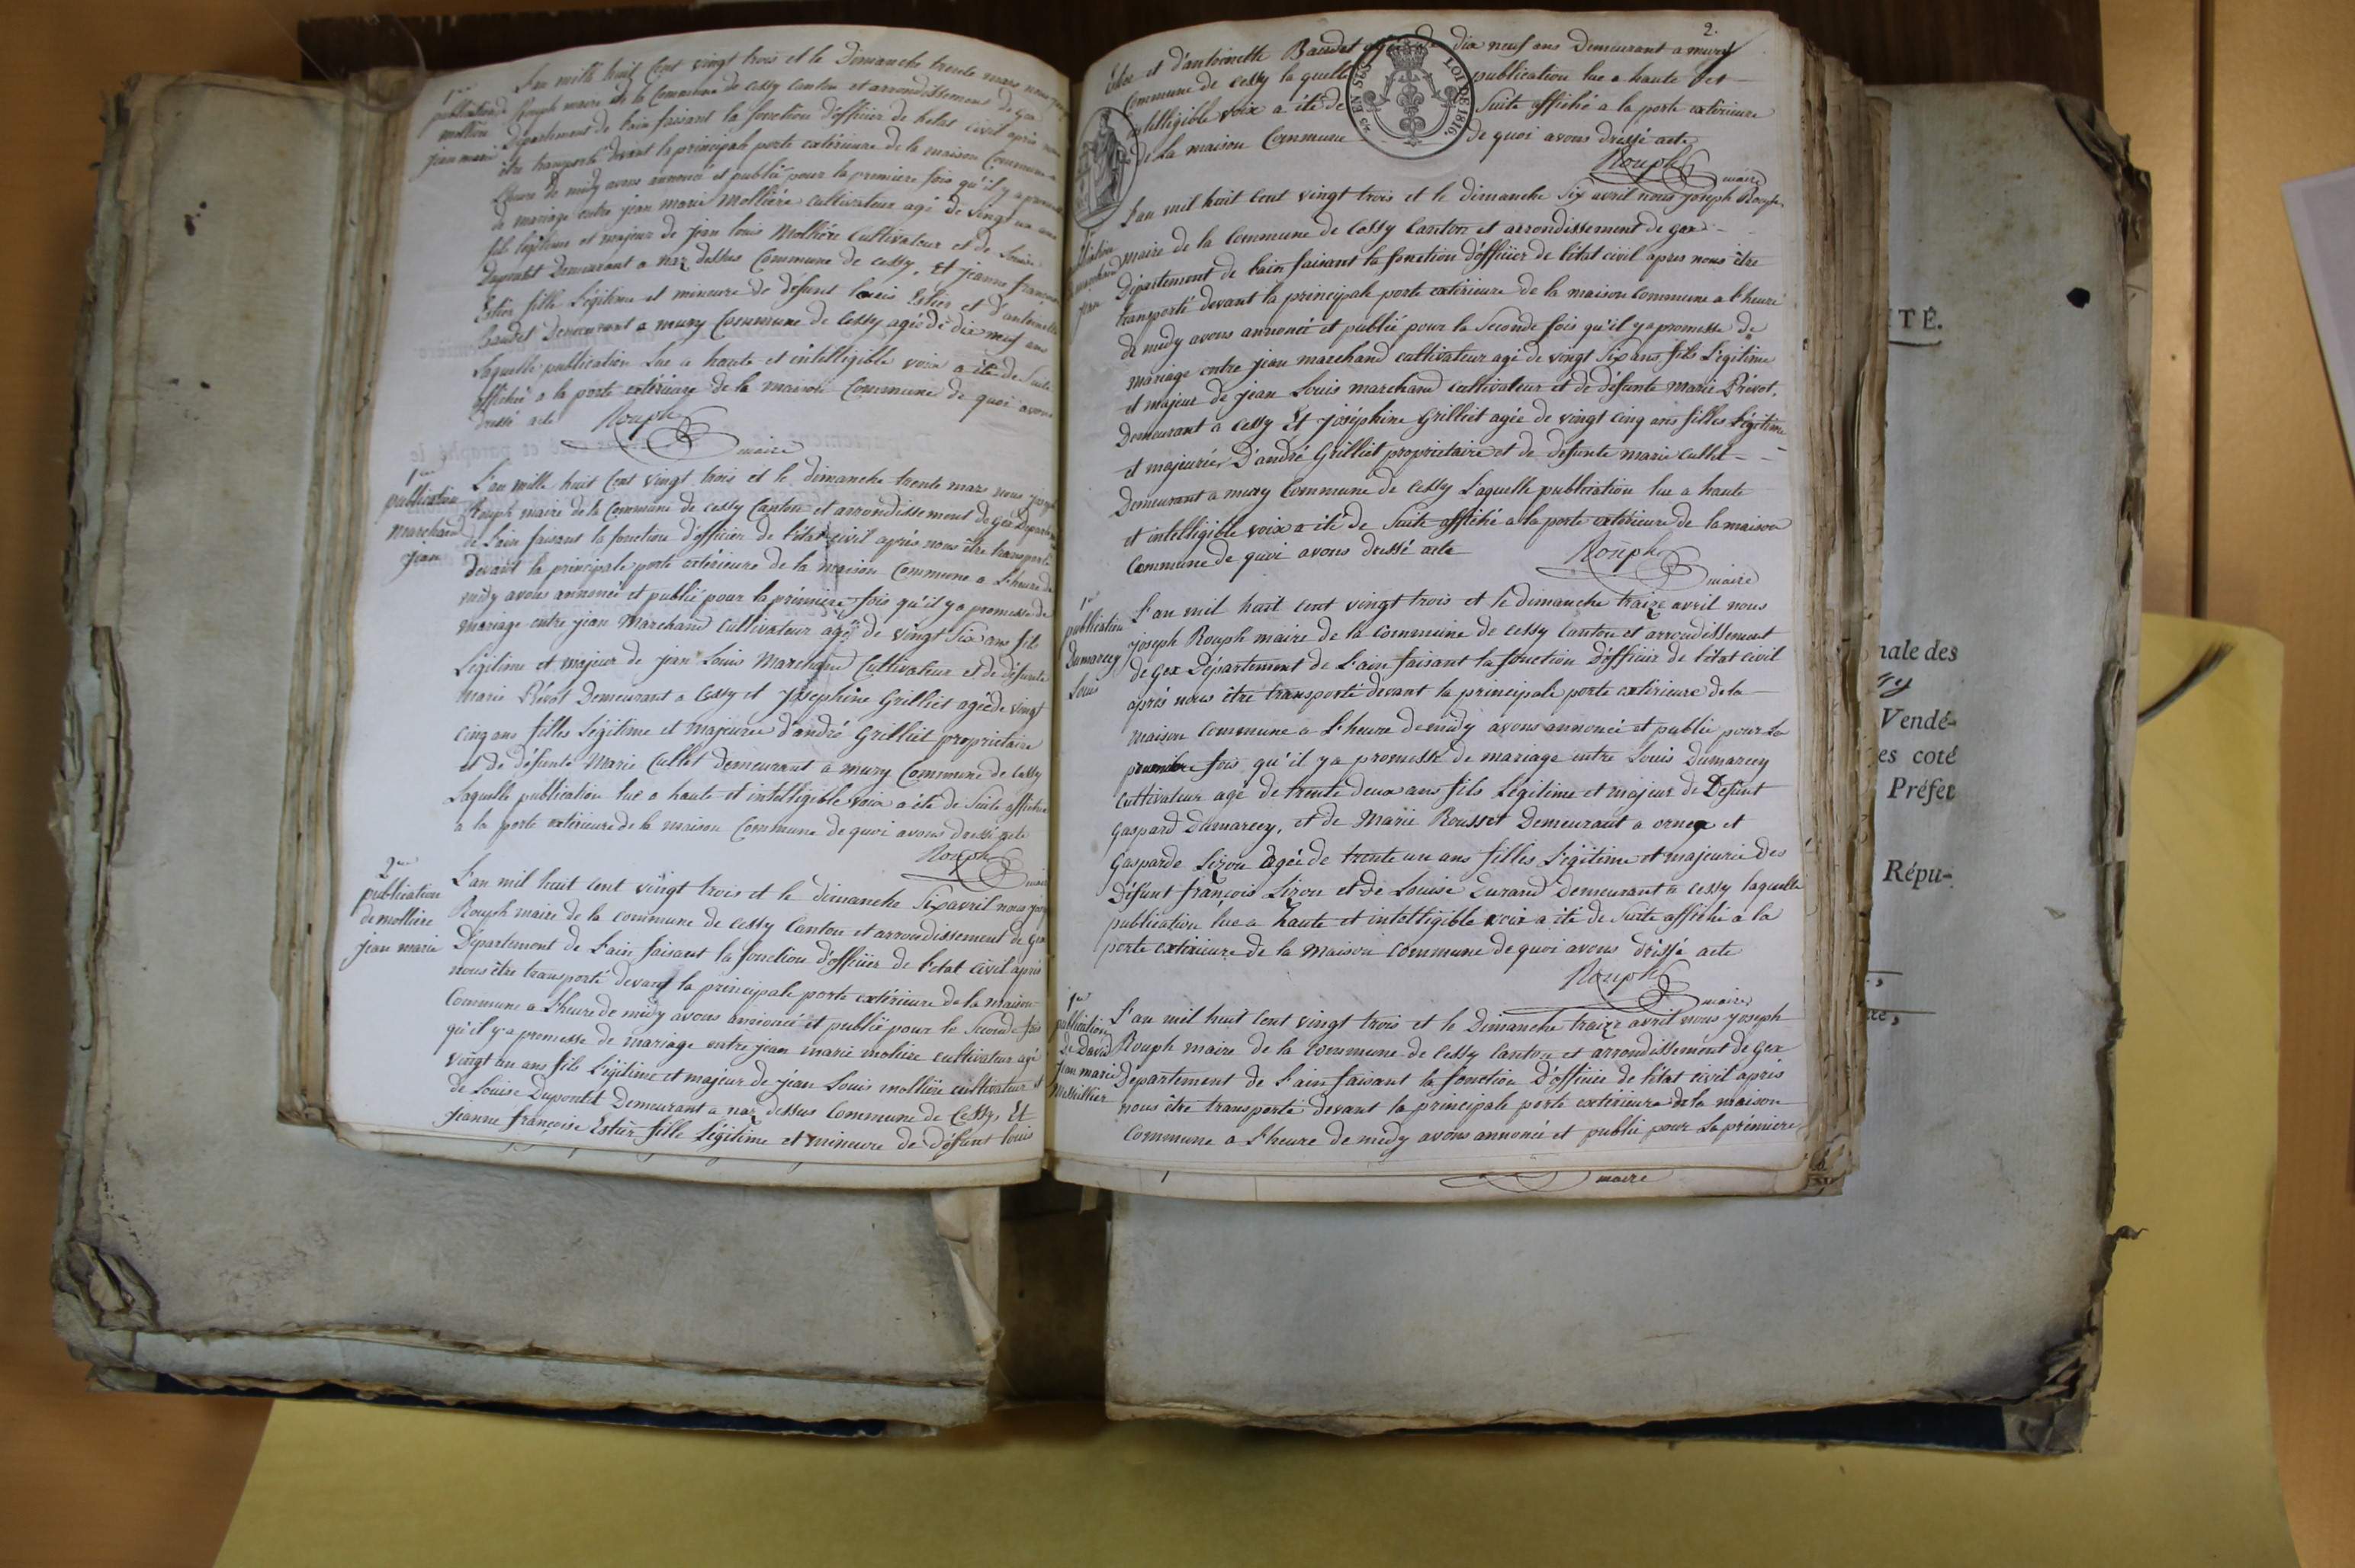 1ere
publication de
mollière
jean marie
L'an mille huit Cent vingt trois et le Dimanche trente mars nous
Rouph maire de la Commune de Cessy Canton et arrondissement de Gex
Département de l'ain faisant la fonction d'officier de l'etat civil après nous
être transporté devant la principale porte extérieure de la maison Commune a
L'heure de midy avons annoncé et publié pour la première fois qu'il y a promesse
de mariage entre jean marie Mollière cultivateur agé de vingt un ans
fils légitime et majeur de jean louis Mollière Cultivateur et de Louise
Dupontet Demeurant a naz dessus Commune de cessy, Et jeanne françoise
Estier fille Légitime et mineure de défunt louis Estier et d'antoinette
Baudet Demeurant a mury Commune de Cessy agée de dix neuf ans
Laquelle publication Lue a haute et intelligible voix a été de Suite
affiché a la porte extérieure de la maison Commune de quoi avons
dressé acte Rouph
maire
1ere
publication
Marchand
Jean
L'an mille huit Cent vingt trois et le dimanche trente mars nous joseph
Rouph maire de la Commune de cessy Canton et arrondissement de Gex Département
de l'ain faisant la fonction d'officier de l'état civil après nous être transporté
devant la principale porte extérieure de la maison Commune a L'heure de
midy avons annoncé et publié pour la première fois qu'il y a promesse de
mariage entre jean Marchand Cultivateur agé de vingt Six ans fils
Légitime et majeur de jean Louis Marchand Cultivateur et de défunte
Marie Prévot Demeurant a Cessy et Joséphine Grilliet agée de vingt
Cinq ans filles Légitime et majeurée d'andré Grilliet proprietaire
et de défunte Marie Cullet demeurant a mury Commune de Cessy
Laquelle publication lue a haute et intelligible voix a été de Suite affichée
a la porte extérieure de la maison Commune de quoi avons dressé acte
Rouph
maire
2me
publication
de mollière
jean marie
L'an mil huit cent vingt trois et le dimanche Six avril nous
Rouph maire de la commune de cessy Canton et arrondissement de Gex
Département de L'ain faisant la fonction d'officier de l'etat civil après
nous être transporté devant la principale porte extérieure de la maison
Commune a L'heure de midy avons annoncé et publié pour la Seconde fois
qu'il y a promesse de mariage entre jean marie molière cultivateur agé
vingt un ans fils Légitime et majeur de jean Louis mollière cultivateur et
de Louise Dupontet Demeurant a naz dessus Commune de Cessy, Et
jeanne françoise Estier fille Légitime et mineure de défunt louis
2.
Estier et d'antoinette Baudet agée de dix neuf ans Demeurant a mury
Commune de cessy la quelle publication lue a haute et
intelligible voix a été de Suite affiché a la porte extérieure
de la maison Commune de quoi avons dressé acte
EN SUS
LOI DE 1816
Rouph
maire
publication
marchand
jean
L'an mil huit cent vingt trois et le dimanche Six avril nous joseph Rouph
maire de la Commune de Cessy Canton et arrondissement de gex
Département de l'ain faisant la fonction d'officier de l'état civil apres nous être
transporté devant la principale porte extérieure de la maison commune a l'heure
de midy avons annoncé et publié pour la Seconde fois qu'il y a promesse de
mariage entre jean marchand cultivateur agé de vingt Six ans fils Légitime
et majeur de jean Louis marchand cultivateur et de défunte marie Prévot,
Demeurant a Cessy Et joséphine Grilliet agée de vingt cinq ans filles Légitime
et majeurée D'andré Grilliet proprietaire et de défunte marie cullet
Demeurant a mury Commune de Cessy Laquelle publication lue a haute
et intelligible voix a été de Suite affiché a la porte extérieure de la maison
Commune de quoi avons dressé acte Rouph
maire
1ere
publication
Dumarcey
Louis
L'an mil huit cent vingt trois et le dimanche traize avril nous
joseph Rouph maire de la commune de cessy canton et arrondissement
de Gex Département de L'ain faisant la fonction d'officier de l'état civil
après nous être transporté devant la principale porte extérieure de la
maison commune a L'heure de midy avons annoncé et publié pour La
première fois qu'il y a promesse de mariage entre Louis Dumarcey
Cultivateur agé de trente deux ans fils Légitime et majeur de Défunt
Gaspard Dumarcey, et de Marie Rousset Demeurant a ornex et
Gasparde Lizon agée de trente un ans filles Légitime et majeurée des
Défunt françois Lizon et de Louise Durand Demeurant a cessy laquelle
publication lue a haute et intelligible voix a été de Suite affiché a la
porte extérieure de la Maison Commune de quoi avons dressé acte
Rouph
maire
1ere
publication
de David
jean marie
L'an mil huit Cent vingt trois et le Dimanche traize avril nous joseph
Rouph maire de la Commune de Cessy Canton et arrondissement de Gex
Département de L'ain faisant la fonction D'officier de l'état civil après
nous être transporté devant la principale porte extérieure de la maison
Commune a L'heure de midy avons annoncé et publié pour La première
maire
TÉ.
nale des
Vendé-
es coté
Préfet
Répu-